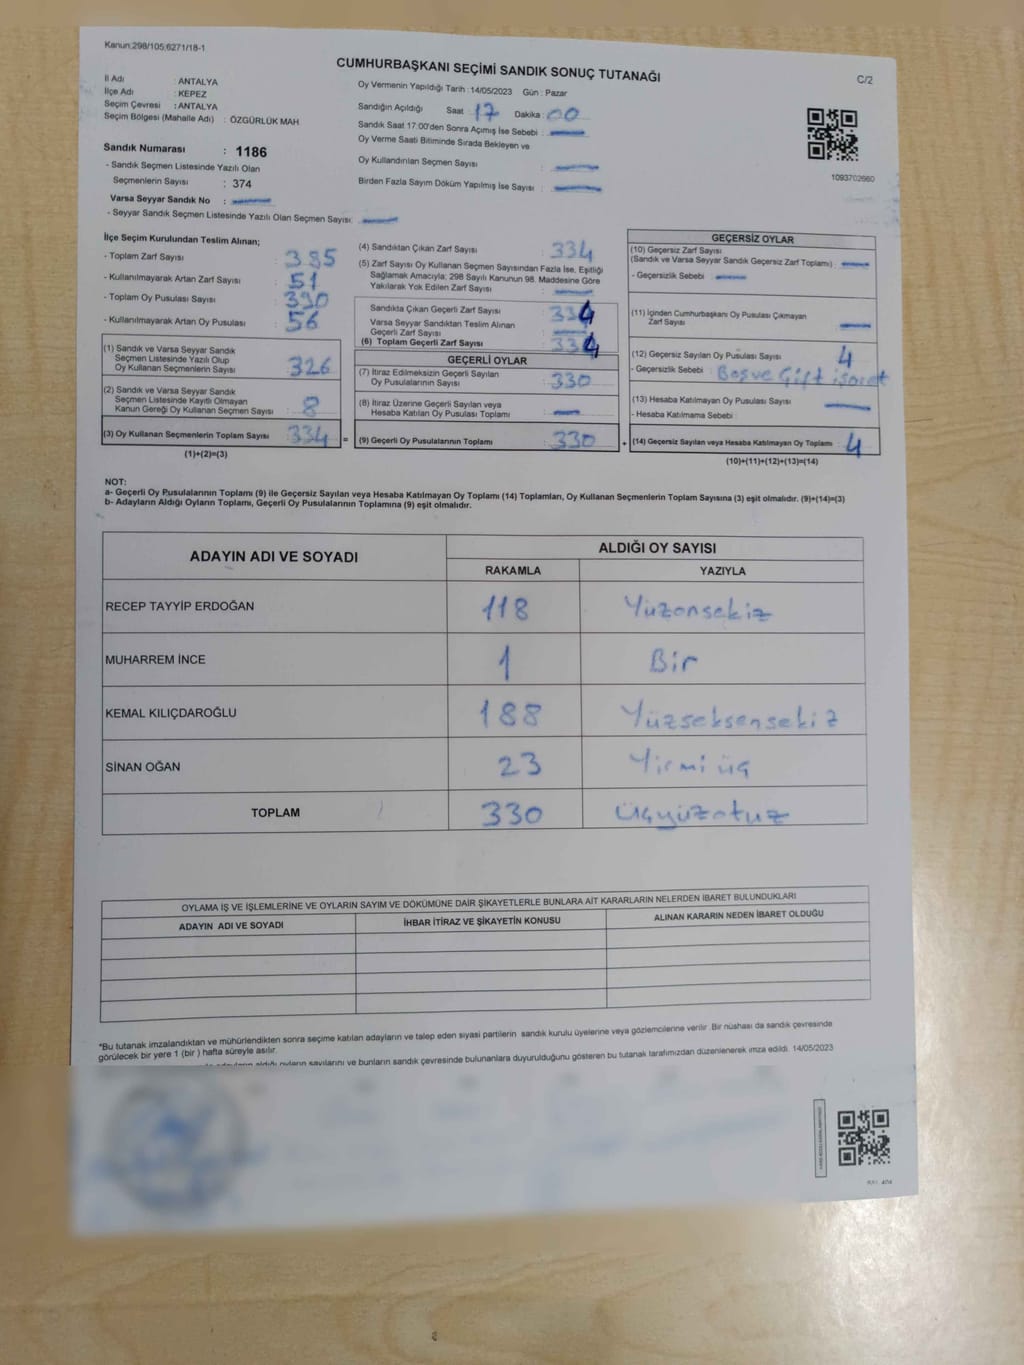 Kanun:298/105;6271/18-1
CUMHURBAŞKANI SEÇİMİ SANDIK SONUÇ TUTANAĞI
C/2
İl Adı : ANTALYA
İlçe Adı : KEPEZ
Seçim Çevresi : ANTALYA
Seçim Bölgesi (Mahalle Adı) : ÖZGÜRLÜK MAH.
Sandık Numarası : 1186
- Sandık Seçmen Listesinde Yazılı Olan
Seçmenlerin Sayısı : 374
Varsa Seyyar Sandık No :
- Seyyar Sandık Seçmen Listesinde Yazılı Olan Seçmen Sayısı:
Oy Vermenin Yapıldığı Tarih :14/05/2023 Gün : Pazar
Sandığın Açıldığı Saat : 17 Dakika : 00
Sandık Saat 17:00'den Sonra Açılmış İse Sebebi :
Oy Verme Saati Bitiminde Sırada Bekleyen ve
Oy Kullandırılan Seçmen Sayısı :
Birden Fazla Sayım Döküm Yapılmış İse Sayısı :
1093702660
İlçe Seçim Kurulundan Teslim Alınan;
- Toplam Zarf Sayısı : 385
- Kullanılmayarak Artan Zarf Sayısı : 51
- Toplam Oy Pusulası Sayısı : 390
- Kullanılmayarak Artan Oy Pusulası : 56
(1) Sandık ve Varsa Seyyar Sandık
Seçmen Listesinde Yazılı Olup
Oy Kullanan Seçmenlerin Sayısı : 326
(2) Sandık ve Varsa Seyyar Sandık
Seçmen Listesinde Kayıtlı Olmayan
Kanun Gereği Oy Kullanan Seçmen Sayısı : 8
(3) Oy Kullanan Seçmenlerin Toplam Sayısı : 334 =
(1)+(2)=(3)
(4) Sandıktan Çıkan Zarf Sayısı : 334
(5) Zarf Sayısı Oy Kullanan Seçmen Sayısından Fazla İse, Eşitliği
Sağlamak Amacıyla; 298 Sayılı Kanunun 98. Maddesine Göre
Yakılarak Yok Edilen Zarf Sayısı :
Sandıkta Çıkan Geçerli Zarf Sayısı : 334
Varsa Seyyar Sandıktan Teslim Alınan
Geçerli Zarf Sayısı :
(6) Toplam Geçerli Zarf Sayısı : 334
GEÇERLİ OYLAR
(7) İtiraz Edilmeksizin Geçerli Sayılan
Oy Pusulalarının Sayısı : 330
(8) İtiraz Üzerine Geçerli Sayılan veya
Hesaba Katılan Oy Pusulası Toplamı :
(9) Geçerli Oy Pusulalarının Toplamı : 330 +
GEÇERSİZ OYLAR
(10) Geçersiz Zarf Sayısı
(Sandık ve Varsa Seyyar Sandık Geçersiz Zarf Toplamı) :
- Geçersizlik Sebebi :
(11) İçinden Cumhurbaşkanı Oy Pusulası Çıkmayan
Zarf Sayısı :
(12) Geçersiz Sayılan Oy Pusulası Sayısı : 4
- Geçersizlik Sebebi : Boş ve Çift işaret
(13) Hesaba Katılmayan Oy Pusulası Sayısı :
- Hesaba Katılmama Sebebi :
(14) Geçersiz Sayılan veya Hesaba Katılmayan Oy Toplamı : 4
(10)+(11)+(12)+(13)=(14)
NOT:
a- Geçerli Oy Pusulalarının Toplamı (9) ile Geçersiz Sayılan veya Hesaba Katılmayan Oy Toplamı (14) Toplamları, Oy Kullanan Seçmenlerin Toplam Sayısına (3) eşit olmalıdır. (9)+(14)=(3)
b- Adayların Aldığı Oyların Toplamı, Geçerli Oy Pusulalarının Toplamına (9) eşit olmalıdır.
ADAYIN ADI VE SOYADI
ALDIĞI OY SAYISI
RAKAMLA YAZIYLA
RECEP TAYYİP ERDOĞAN 118 Yüzonsekiz
MUHARREM İNCE 1 Bir
KEMAL KILIÇDAROĞLU 188 Yüzseksensekiz
SİNAN OĞAN 23 Yirmi üç
TOPLAM 330 Üçyüzotuz
OYLAMA İŞ VE İŞLEMLERİNE VE OYLARIN SAYIM VE DÖKÜMÜNE DAİR ŞİKAYETLERLE BUNLARA AİT KARARLARIN NELERDEN İBARET BULUNDUKLARI
ADAYIN ADI VE SOYADI İHBAR İTİRAZ VE ŞİKAYETİN KONUSU ALINAN KARARIN NEDEN İBARET OLDUĞU
*Bu tutanak imzalandıktan ve mühürlendikten sonra seçime katılan adayların ve talep eden siyasi partilerin sandık kurulu üyelerine veya gözlemcilerine verilir .Bir nüshası da sandık çevresinde
görülecek bir yere 1 (bir ) hafta süreyle asılır.
adayların aldığı oyların sayılarını ve bunların sandık çevresinde bulunanlara duyurulduğunu gösteren bu tutanak tarafımızdan düzenlenerek imza edildi. 14/05/2023